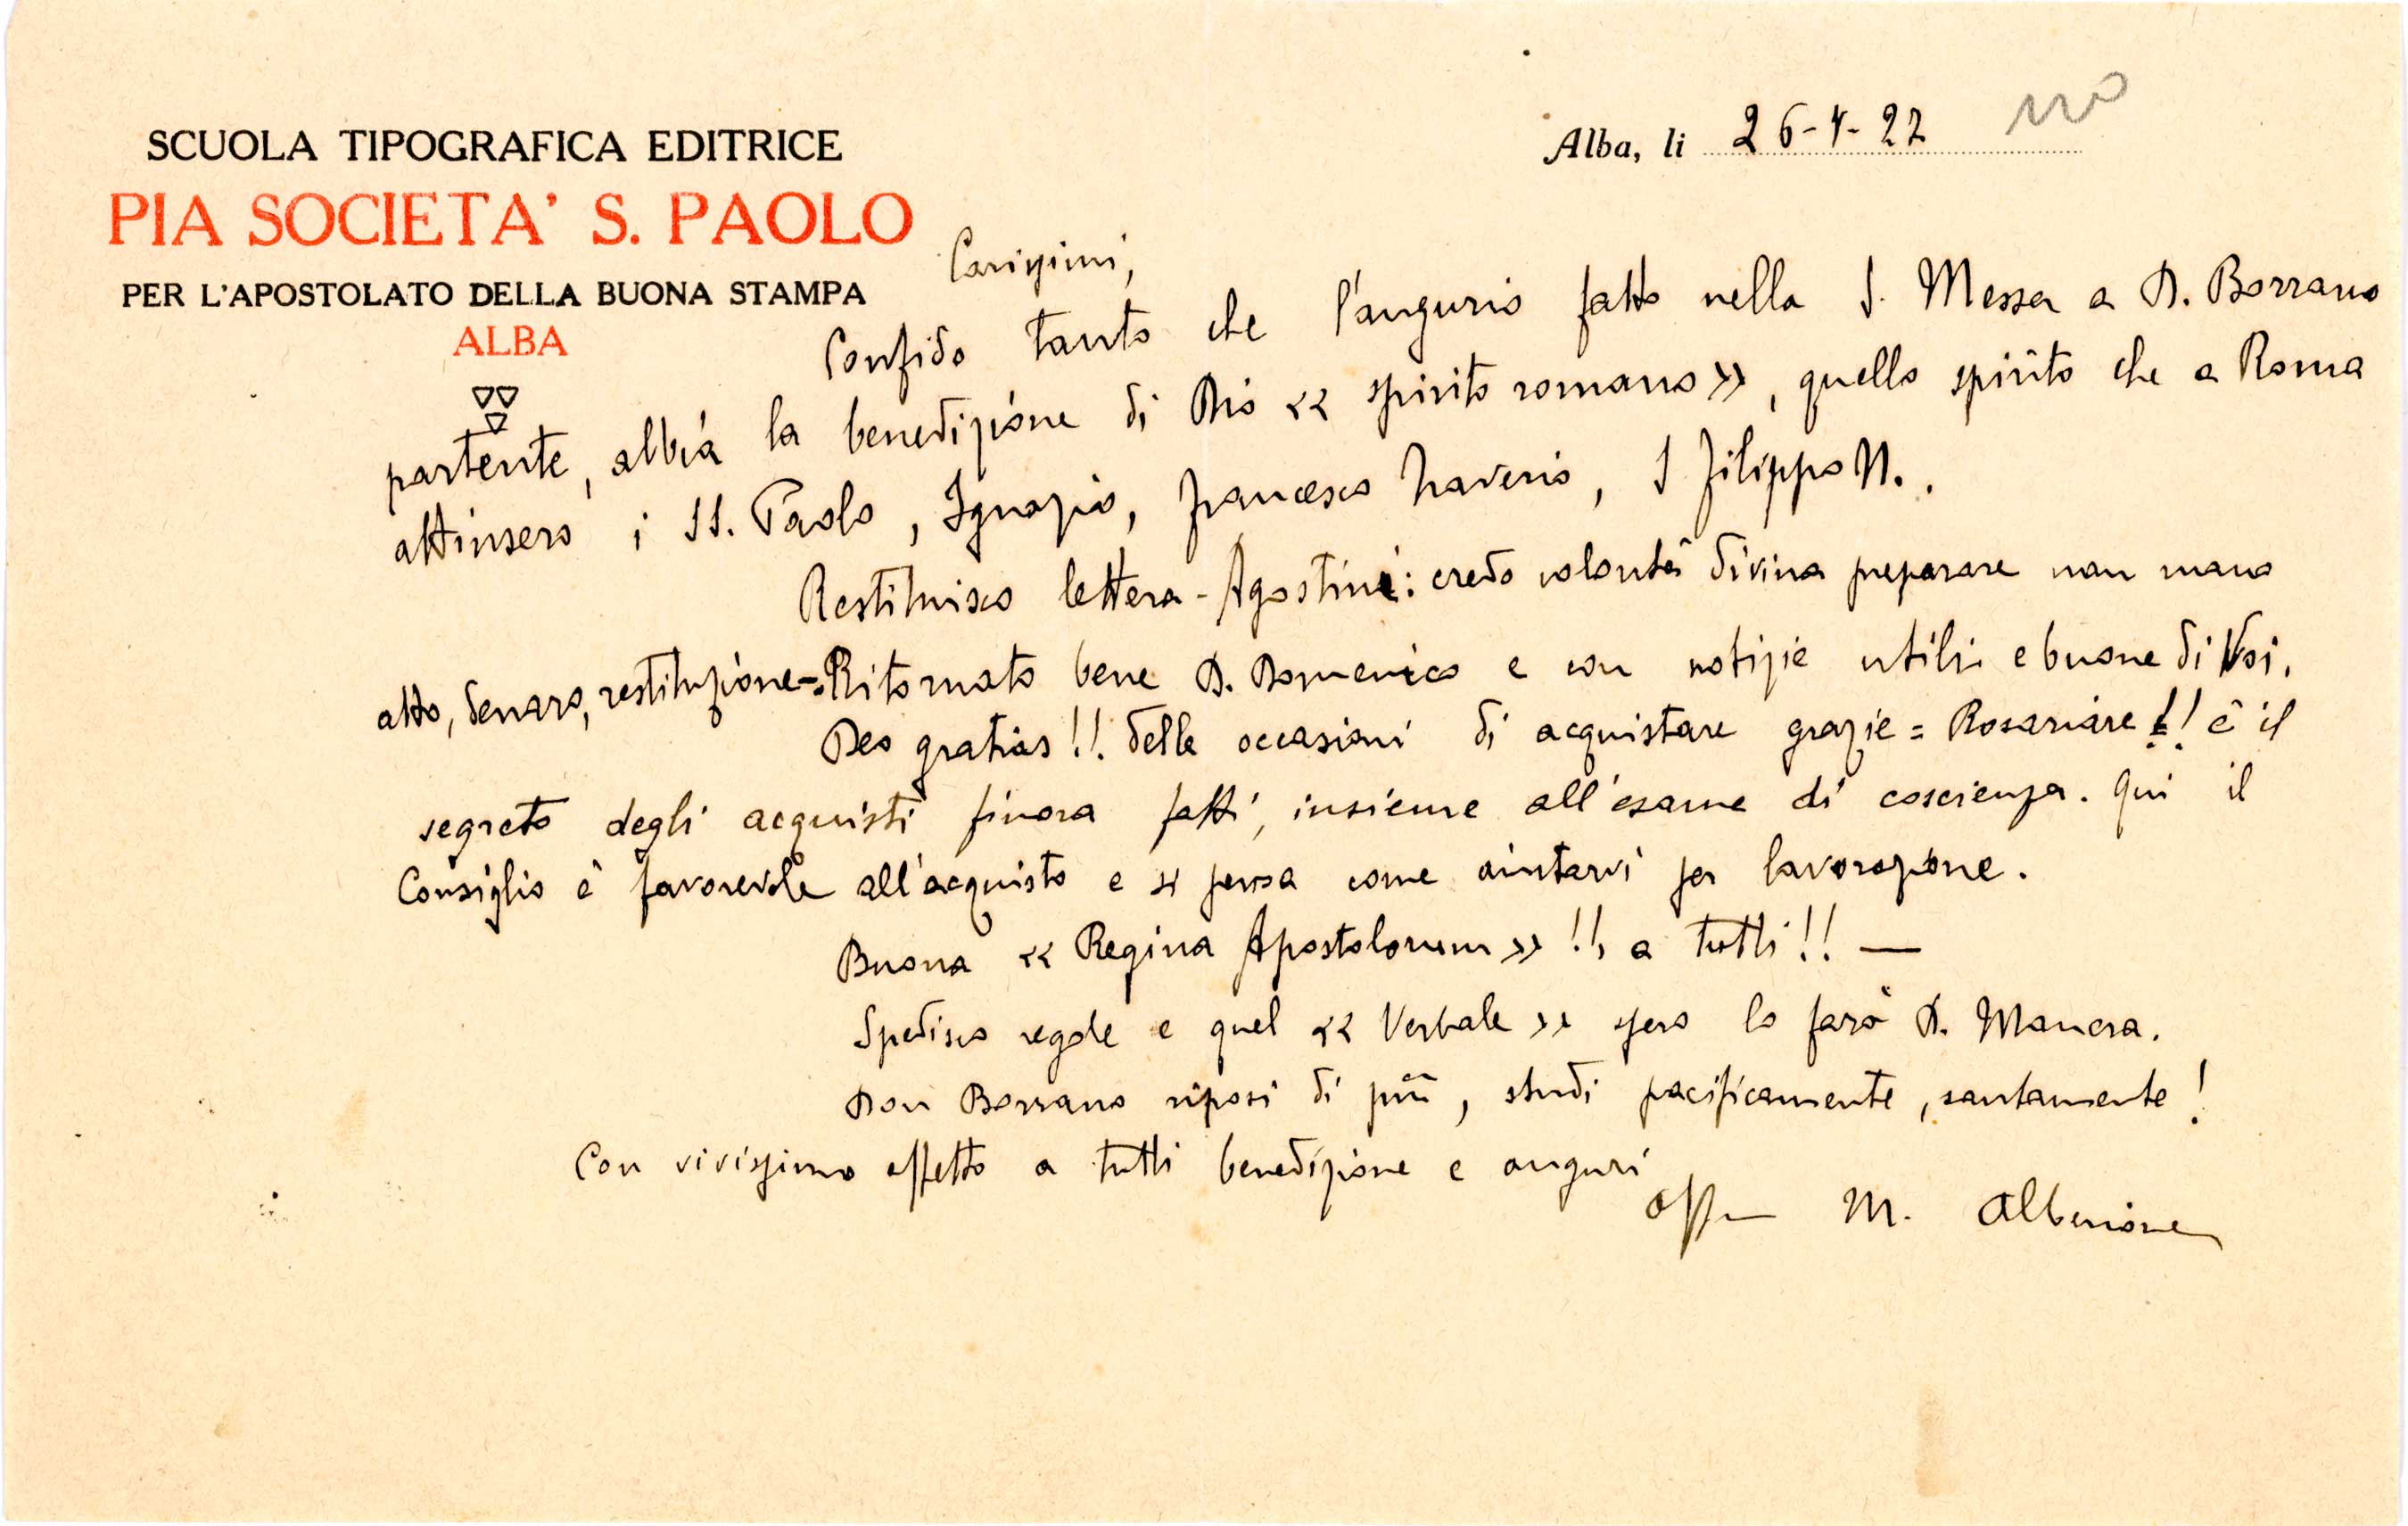 SCUOLA TIPOGRAFICA EDITRICE
PIA SOCIETA' S. PAOLO
PER L'APOSTOLATO DELLA BUONA STAMPA
ALBA
Alba, li 26-4-27
Carissimi,
Confido tanto che l'augurio fatto nella S. Messa a D. Borrano
partente, abbia la benedizione di Dio « spirito romano », quello spirito che a Roma
attinsero i SS. Paolo, Ignazio, Francesco Zaverio, S Filippo N..
Restituisco lettera - Agostini: credo volontà divina preparare man mano
atto, denaro, restituzione - Ritornato bene D. Domenico e con notizie utili e buone di Voi.
Deo gratias!! delle occasioni di acquistare grazie = Rosariare!! è il
segreto degli acquisti finora fatti, insieme all'esame di coscienza. Qui il
Consiglio è favorevole all'acquisto e si pensa come aiutarvi per lavorazione.
Buona « Regina Apostolorum » !!, a tutti!! —
Spedisco regole e quel « Verbale » spero lo farà D. Manera.
Don Borrano riposi di più, studi pacificamente, santamente!
Con vivissimo affetto a tutti benedizione e auguri
aff M. Alberione